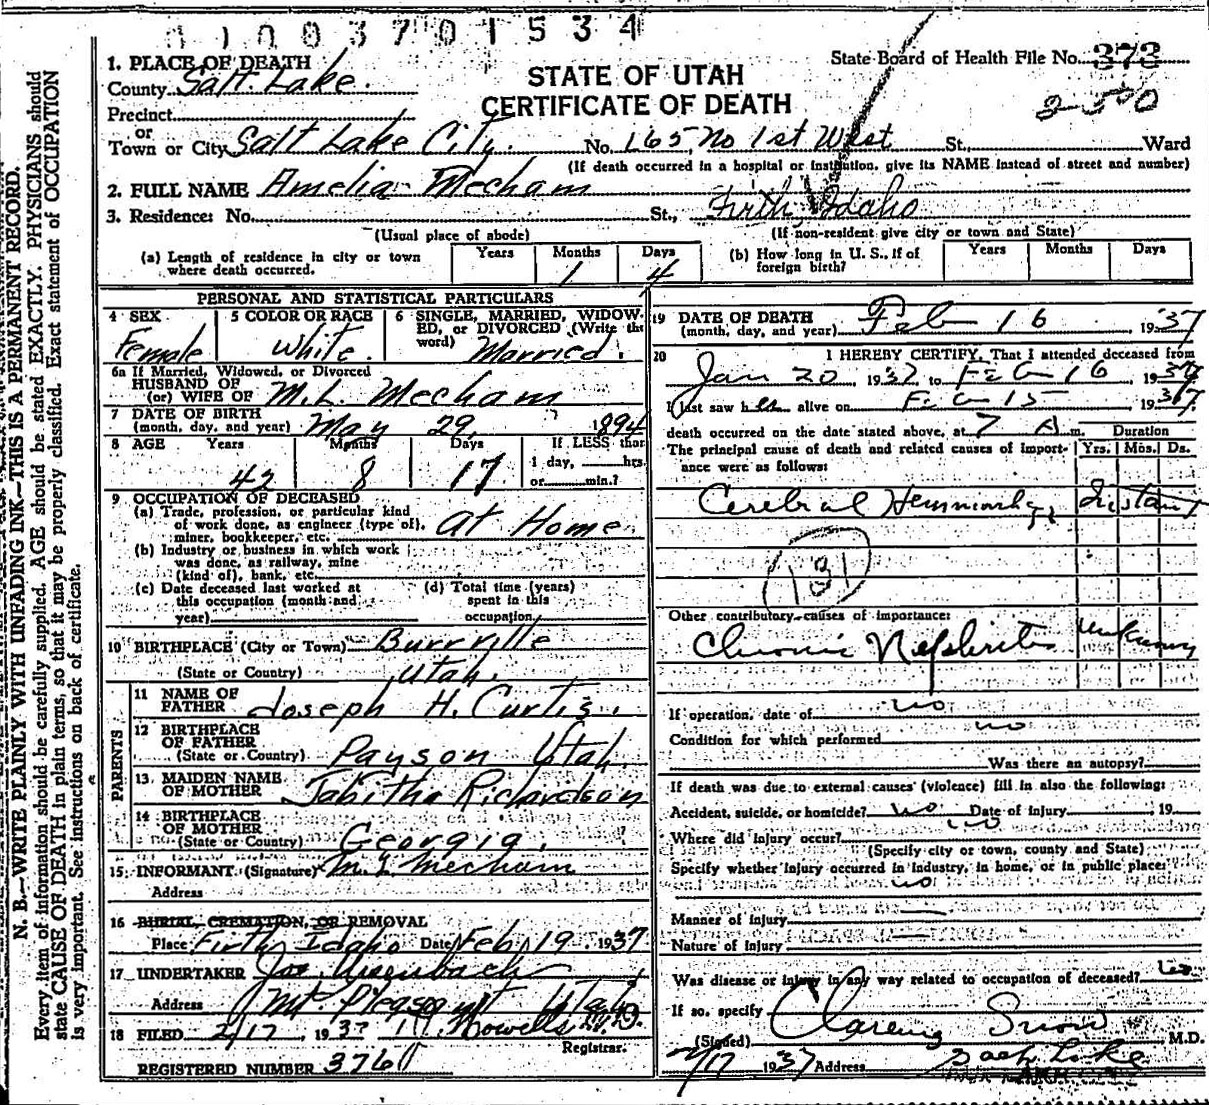 01003701534
State Board of Health File No. 373
1. PLACE OF DEATH
STATE OF UTAH
CERTIFICATE OF DEATH
County Salt Lake.
Precinct
or
Town or City Salt Lake City. No. 165 No 1st West St., Ward
(If death occurred in a hospital or institution, give its NAME instead of street and number)
2. FULL NAME Amelia Mecham
3. Residence: No. St., Firth Idaho
(Usual place of abode) (If non-resident give city or town and State)
(a) Length of residence in city or town where death occurred. Years Months 1 Days 4
(b) How long in U. S., if of foreign birth? Years Months Days
PERSONAL AND STATISTICAL PARTICULARS
4 SEX Female
5 COLOR OR RACE White.
6 SINGLE, MARRIED, WIDOWED, or DIVORCED (Write the word) Married.
6a If Married, Widowed, or Divorced
HUSBAND OF
(or) WIFE OF M. L. Mecham
7 DATE OF BIRTH
(month, day, and year) May 29 1894
8 AGE Years 42 Months 8 Days 17 If LESS than
1 day, hrs.
or min.?
9 OCCUPATION OF DECEASED
(a) Trade, profession, or particular kind
of work done, as engineer (type of),
miner, bookkeeper, etc. At Home
(b) Industry or business in which work
was done, as railway, mine
(kind of), bank, etc.
(c) Date deceased last worked at
this occupation (month and
year)
(d) Total time (years)
spent in this
occupation
10 BIRTHPLACE (City or Town) Burrville
(State or Country) Utah.
PARENTS
11 NAME OF
FATHER Joseph H. Curtis.
12 BIRTHPLACE
OF FATHER
(State or Country) Payson Utah.
13 MAIDEN NAME
OF MOTHER Tabitha Richardson
14 BIRTHPLACE
OF MOTHER
(State or Country) Georgia.
15 INFORMANT (Signature) M L Mecham
Address
16 BURIAL, CREMATION, OR REMOVAL
Place Firth, Idaho Date Feb, 19 1937
17 UNDERTAKER Jos
Address Mt. Pleasant Utah
18 FILED 2/17, 1937
Registrar.
REGISTERED NUMBER 3760
19 DATE OF DEATH
(month, day, and year) Feb 16 1937
20 I HEREBY CERTIFY, That I attended deceased from
Jan 20, 1937, to Feb 16 1937
I last saw her alive on Feb 15 1937
death occurred on the date stated above, at 7 A m. Duration
The principal cause of death and related causes of importance were as follows: Yrs. Mos. Ds.
Cerebral Hemmorhage Instant
131
Other contributory causes of importance:
Chronic Nephritis Unknown
If operation, date of no
Condition for which performed no
Was there an autopsy?
If death was due to external causes (violence) fill in also the following:
Accident, suicide, or homicide? no Date of injury 19
Where did injury occur? no
(Specify city or town, county and State)
Specify whether injury occurred in industry, in home, or in public place:
no
Manner of injury
Nature of injury
Was disease or injury in any way related to occupation of deceased?
If so, specify
(Signed) Clarence Snow M.D.
2/17 1937 Address Salt Lake
N. B.—WRITE PLAINLY WITH UNFADING INK—THIS IS A PERMANENT RECORD.
Every item of information should be carefully supplied. AGE should be stated EXACTLY. PHYSICIANS should
state CAUSE OF DEATH in plain terms, so that it may be properly classified. Exact statement of OCCUPATION
is very important. See instructions on back of certificate.